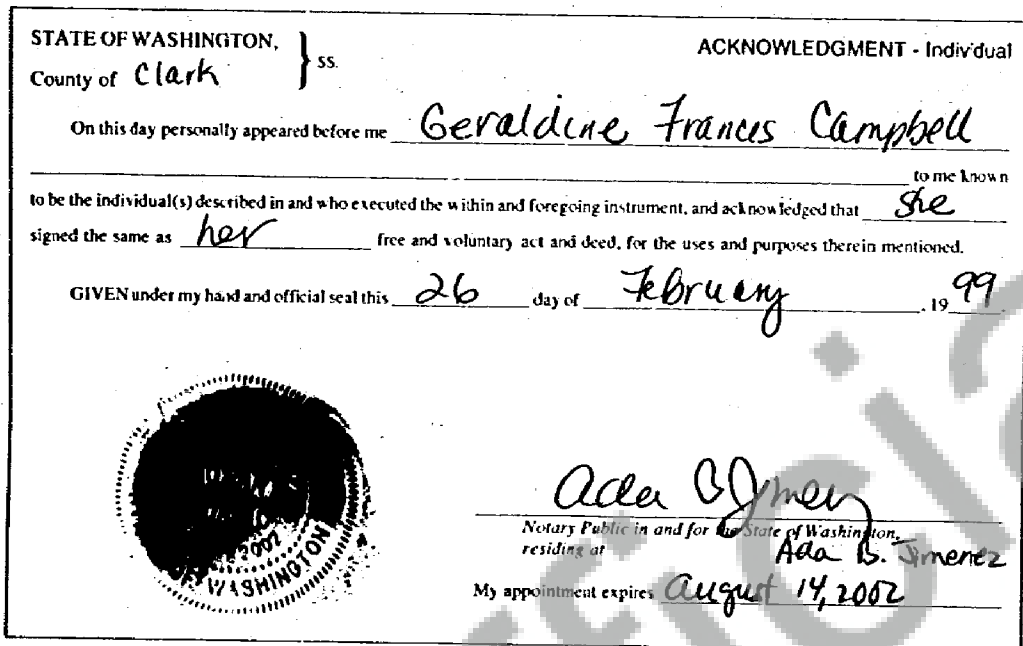 STATE OF WASHINGTON, } ss.
ACKNOWLEDGMENT - Individual
County of Clark
On this day personally appeared before me Geraldine Francis Campbell
to me known
to be the individual(s) described in and who executed the within and foregoing instrument, and acknowledged that she
signed the same as her free and voluntary act and deed, for the uses and purposes therein mentioned.
GIVEN under my hand and official seal this 26 day of February, 19 99
Ada B Jimenez
Notary Public in and for the State of Washington,
residing at
Ada B. Jimenez
My appointment expires August 14, 2002
2002
WASHINGTON